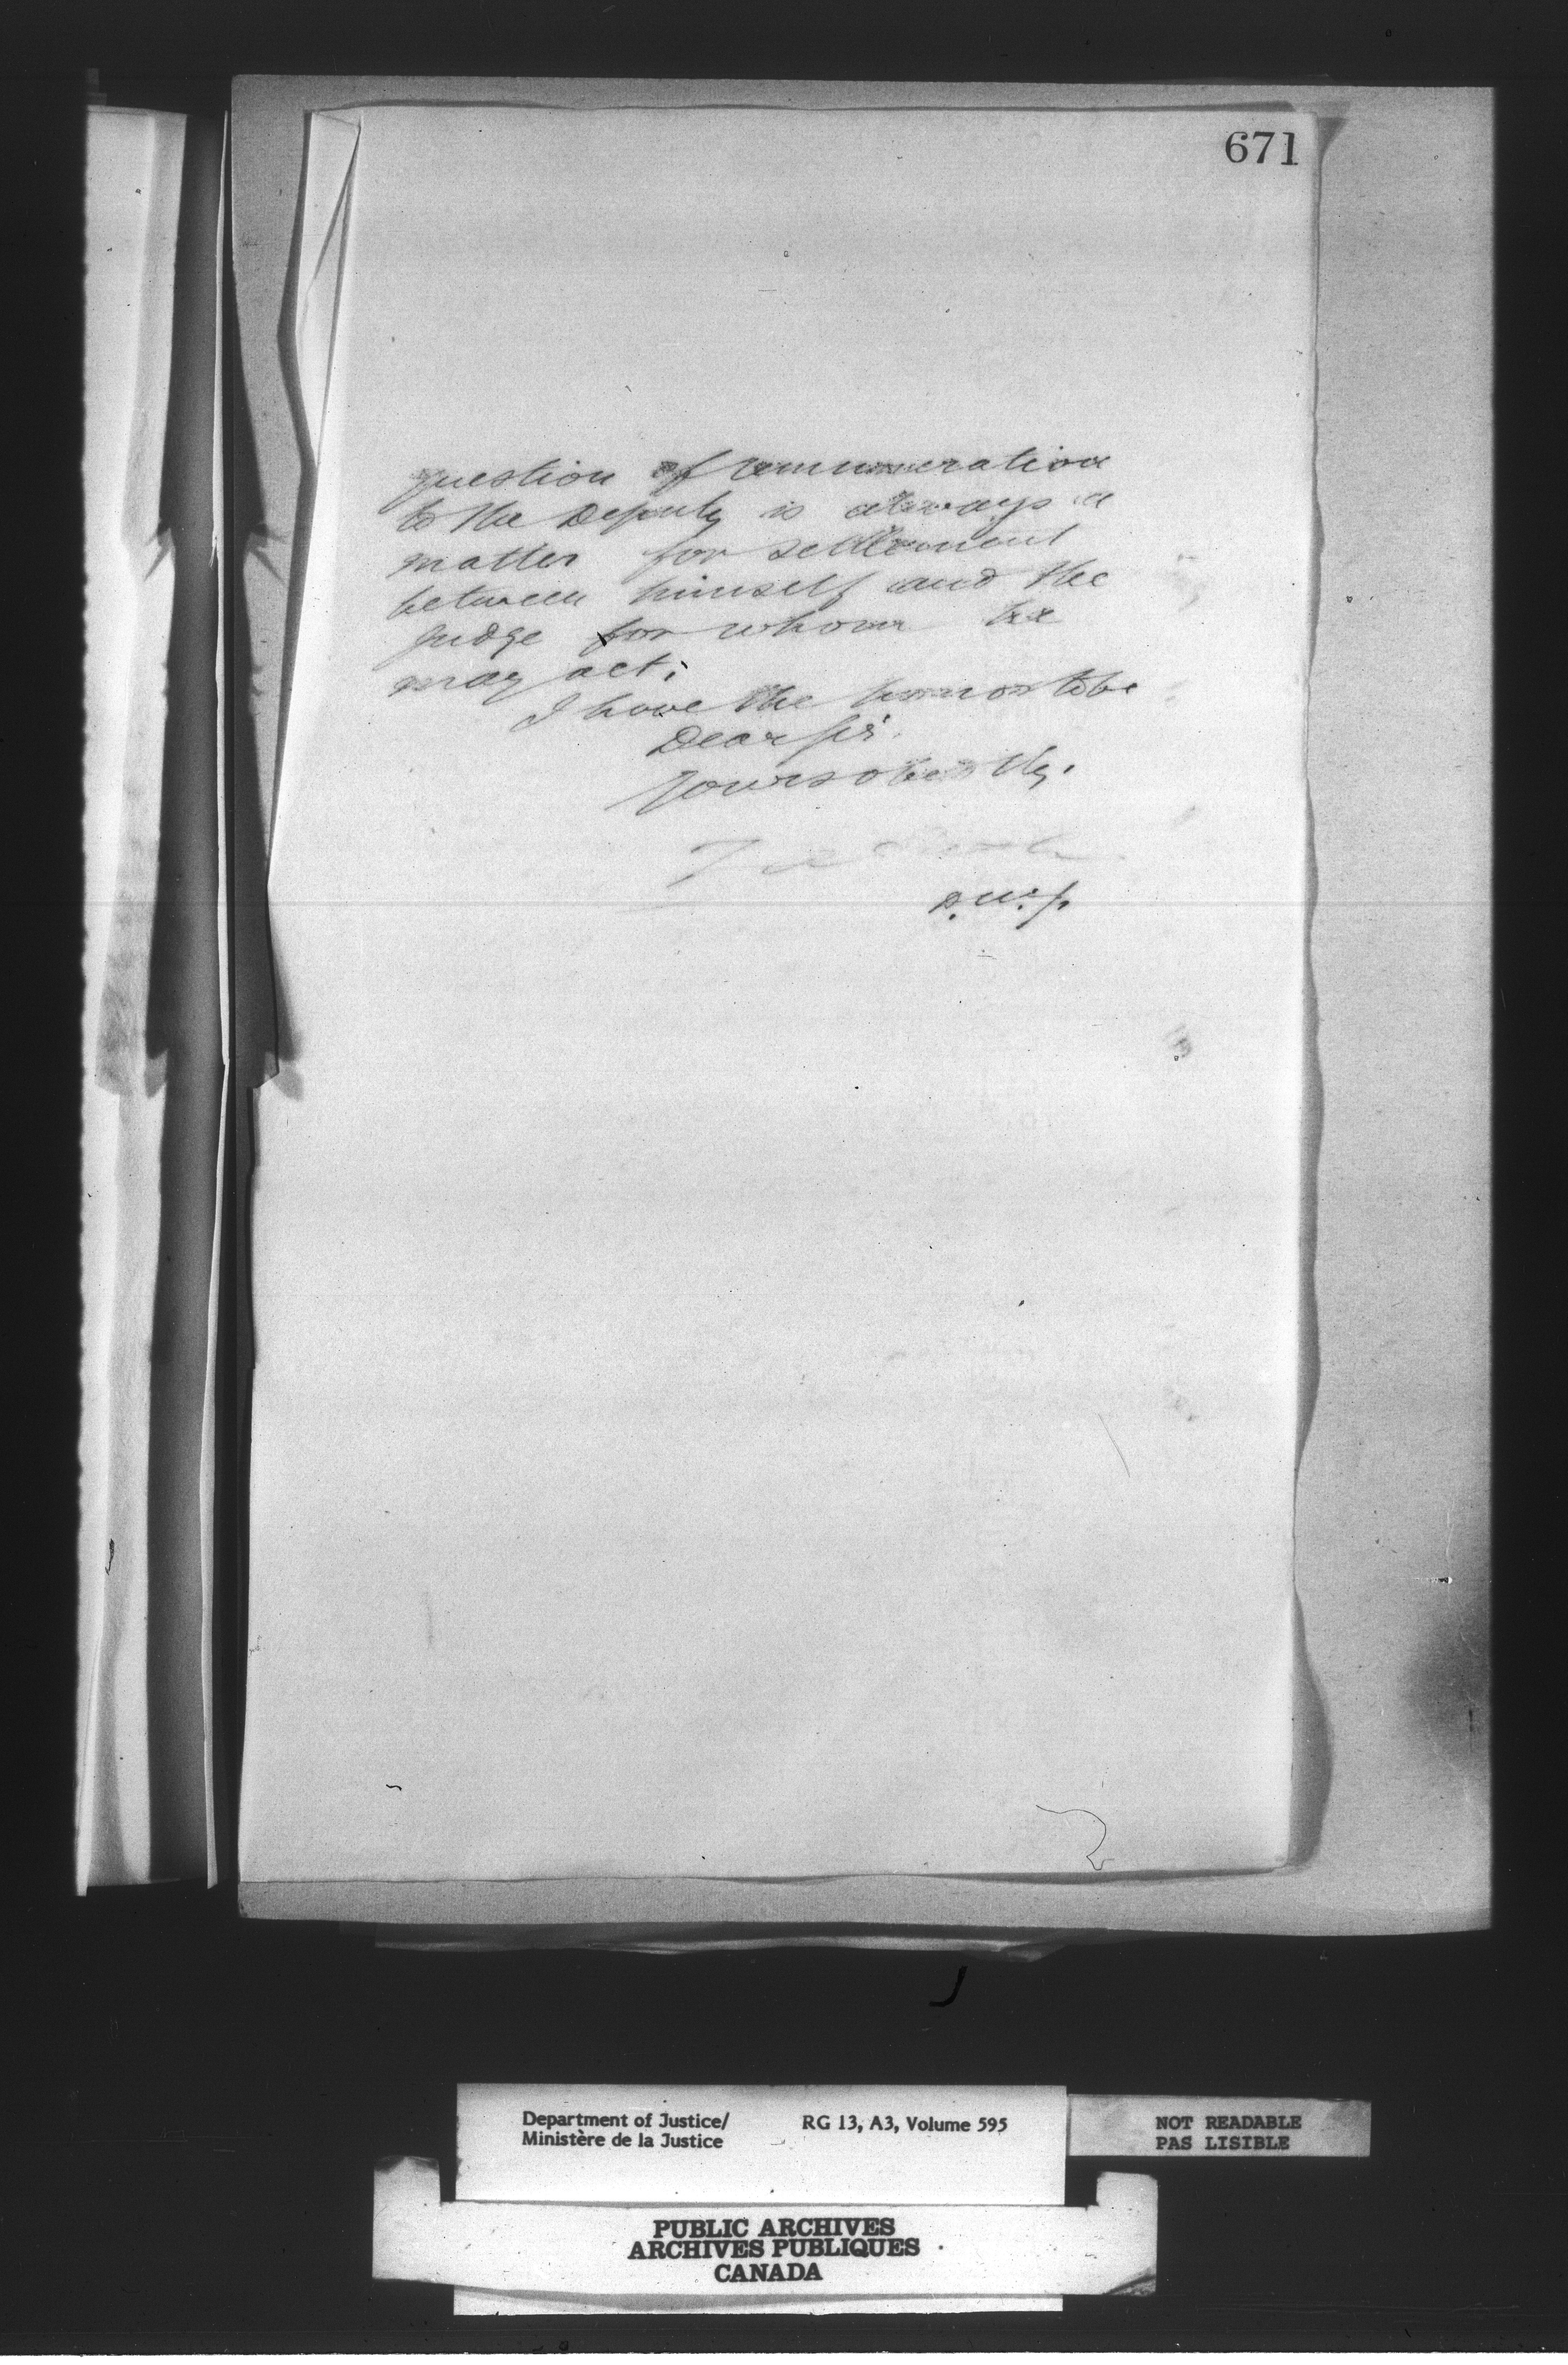 671
question of remuneration
to the Deputy is always a
matter for settlement
between himself and the
judge for whom he
may act;
I have the honor to be
Dear Sir.
Yours obedtly.
D.M.J.
Department of Justice/
Ministère de la Justice
RG 13, A3, Volume 595
NOT READABLE
PAS LISIBLE
PUBLIC ARCHIVES
ARCHIVES PUBLIQUES
CANADA